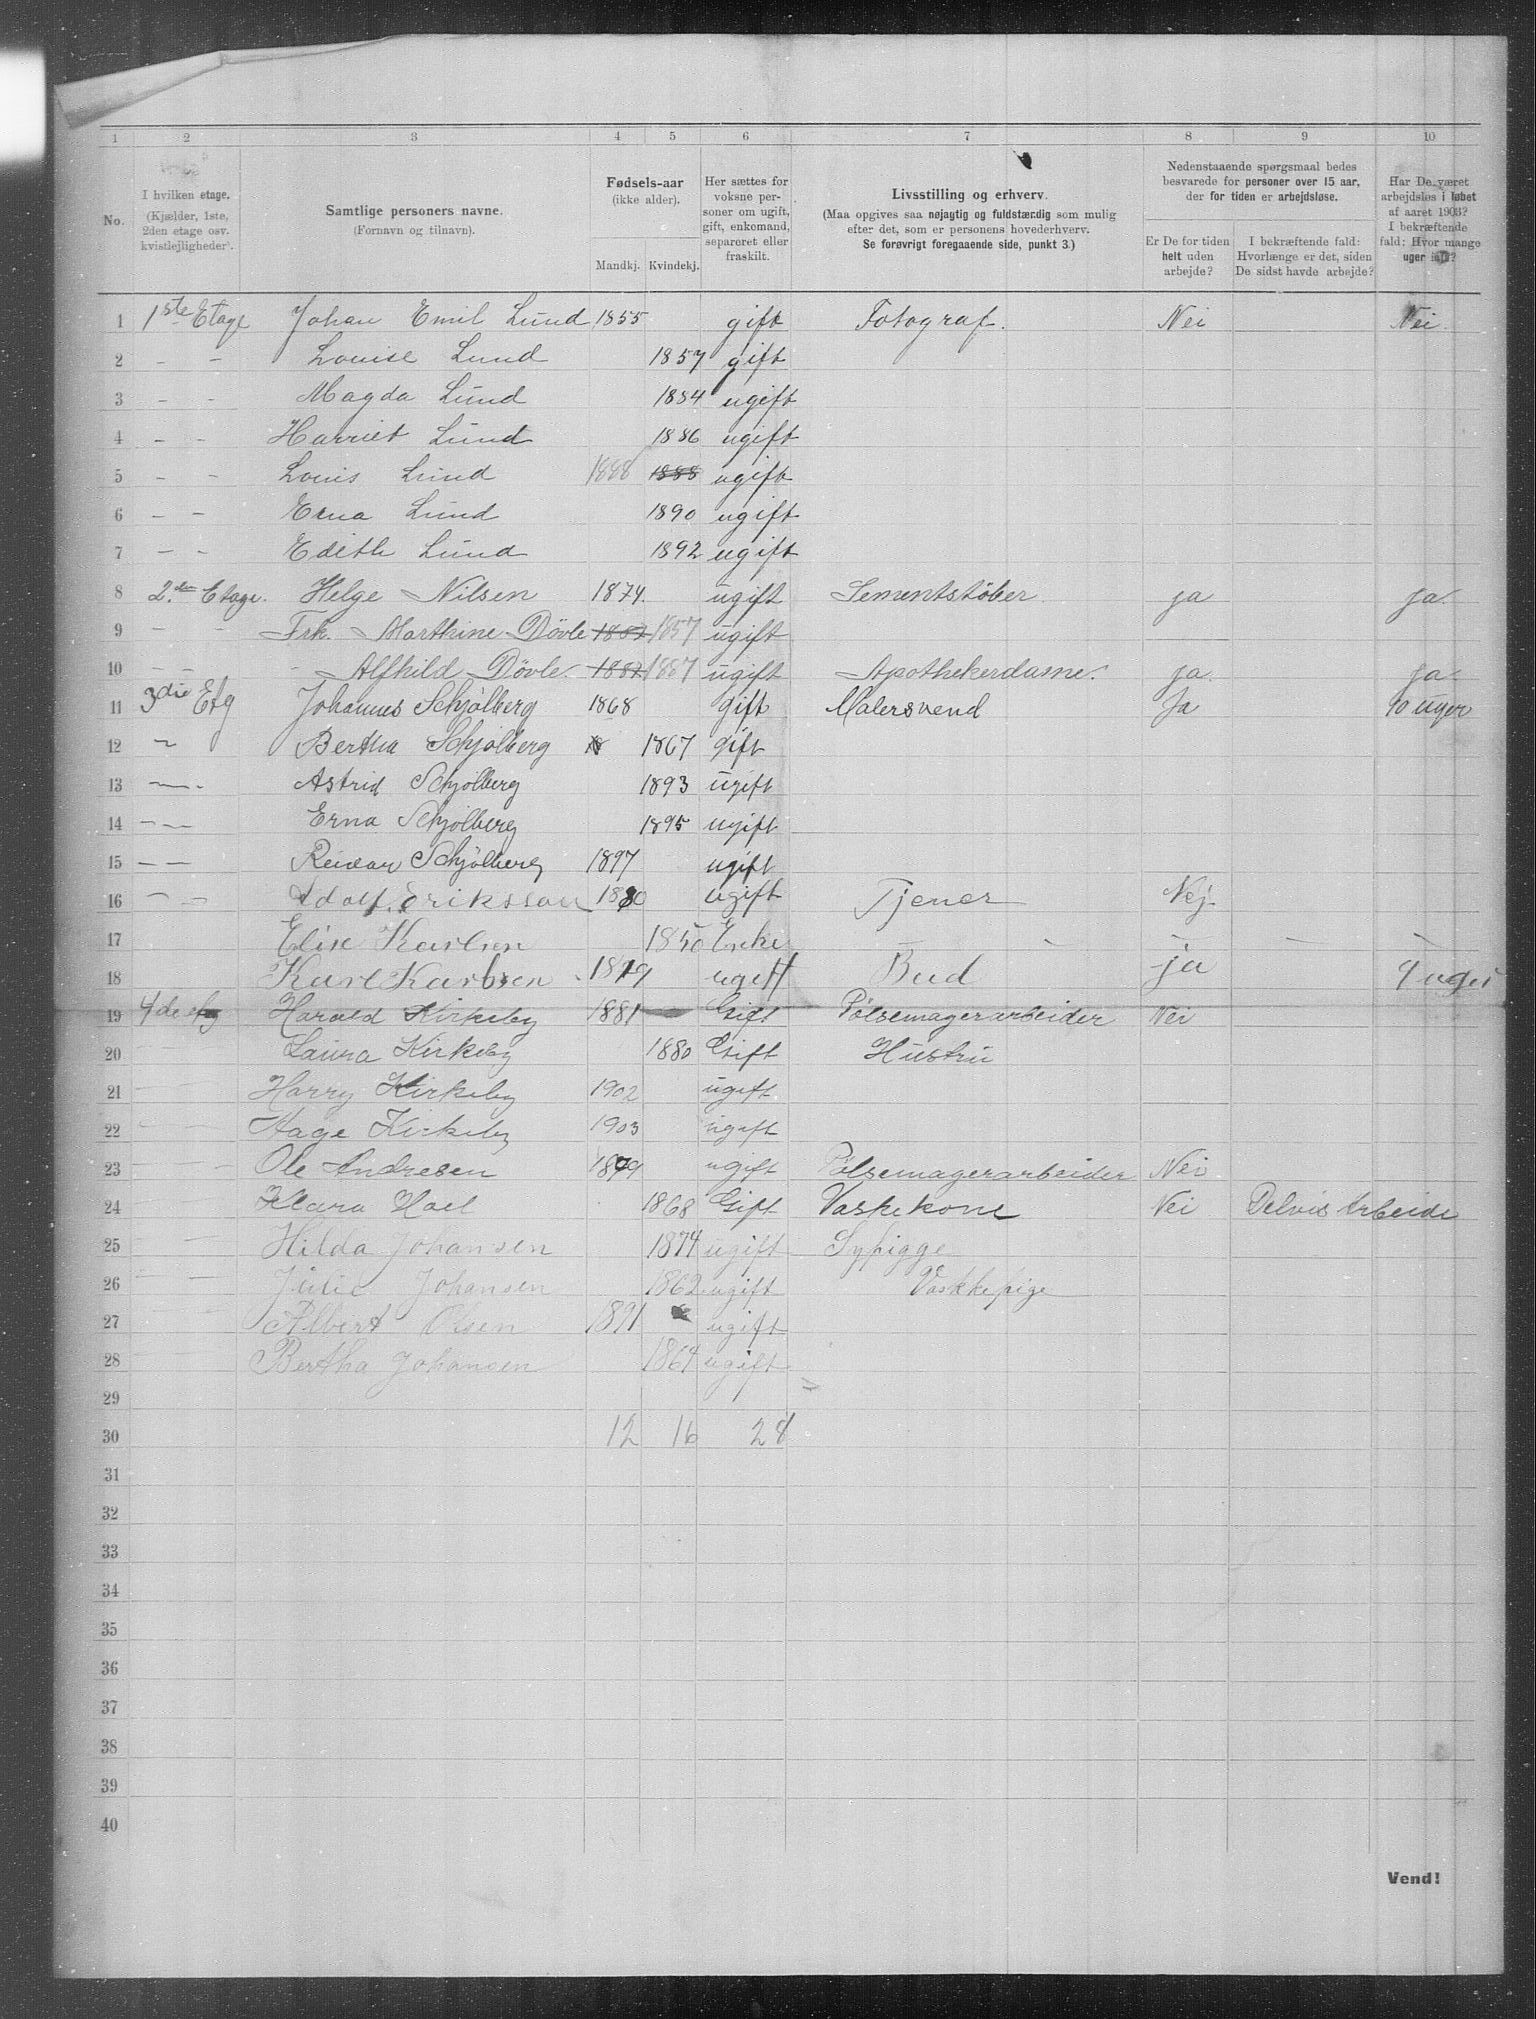 1 2 3 4 5 6 7 8 9 10
No. I hvilken etage. (Kjælder, 1ste, 2den etage osv. kvistlejligheder). Samtlige personers navne. (Fornavn og tilnavn). Fødsels-aar (ikke alder). Mandkj. Kvindekj. Her sættes for voksne personer om ugift, gift, enkemand, separeret eller fraskilt. Livsstilling og erhverv. (Maa opgives saa nøjagtig og fuldstændig som mulig efter det, som er personens hovederhverv. Se forøvrigt foregaaende side, punkt 3.) Nedenstaaende spørgsmaal bedes besvarede for personer over 15 aar, der for tiden er arbejdsløse. Er De for tiden helt uden arbejde? I bekræftende fald: Hvorlænge er det, siden De sidst havde arbejde? Har De været arbejdsløs i løbet af aaret 1903? I bekræftende fald: Hvor mange uger ialt?
1 1ste Etage Johan Emil Lund 1855 gift Fotograf. Nei Nei.
2 - - Louise Lund 1857 gift
3 - - Magda Lund 1884 ugift
4 - - Harriet Lund 1886 ugift
5 - - Louis Lund 1888 1888 ugift
6 - - Erna Lund 1890 ugift
7 - - Edith Lund 1892 ugift
8 2.den Etage. Helge Nilsen 1874. ugift Sementstøber ja ja.
9 - - Frk. Marthine Døvle 1857 ugift
10 - - - Alfhild Døvle. 1887 ugift Apothekerdame. ja. ja.
11 3die Etg Johannes Schjølberg 1868 gift Malersvend Ja 10 uger
12 - Bertha Schjølberg 1867 gift
13 - - Astrid Schjølberg 1893 ugift
14 - - Erna Schjølberg 1895 ugift
15 - - Reidar Schjølberg 1897 ugift
16 - - Adolf Eriksson 1880 ugift Tjener Nej
17 Elise Karlsen 1850 Enke - - ja - -
18 Karl Karlsen 1879 ugift Bud ja 4 uger
19 4de etg Harald Kirkeby 1881 Gift Pølsemagerarbeider Nei
20 Laura Kirkeby 1880 Gift Hustru
21 Harry Kirkeby 1902 ugift
22 Aage Kirkeby 1903 ugift
23 Ole Andresen 1879 ugift Pølsemagerarbeider Nei
24 Klara Hoel 1868 Gift Vaskekone Nei Delvis Arbeide
25 Hilda Johansen 1874 ugift Sypigge
26 Julie Johansen 1862 ugift Vaskkepige
27 Albert Olsen 1891 ugift
28 Bertha Johansen 1864 ugift
29
30 12 16 28
31
32
33
34
35
36
37
38
39
40
Vend!